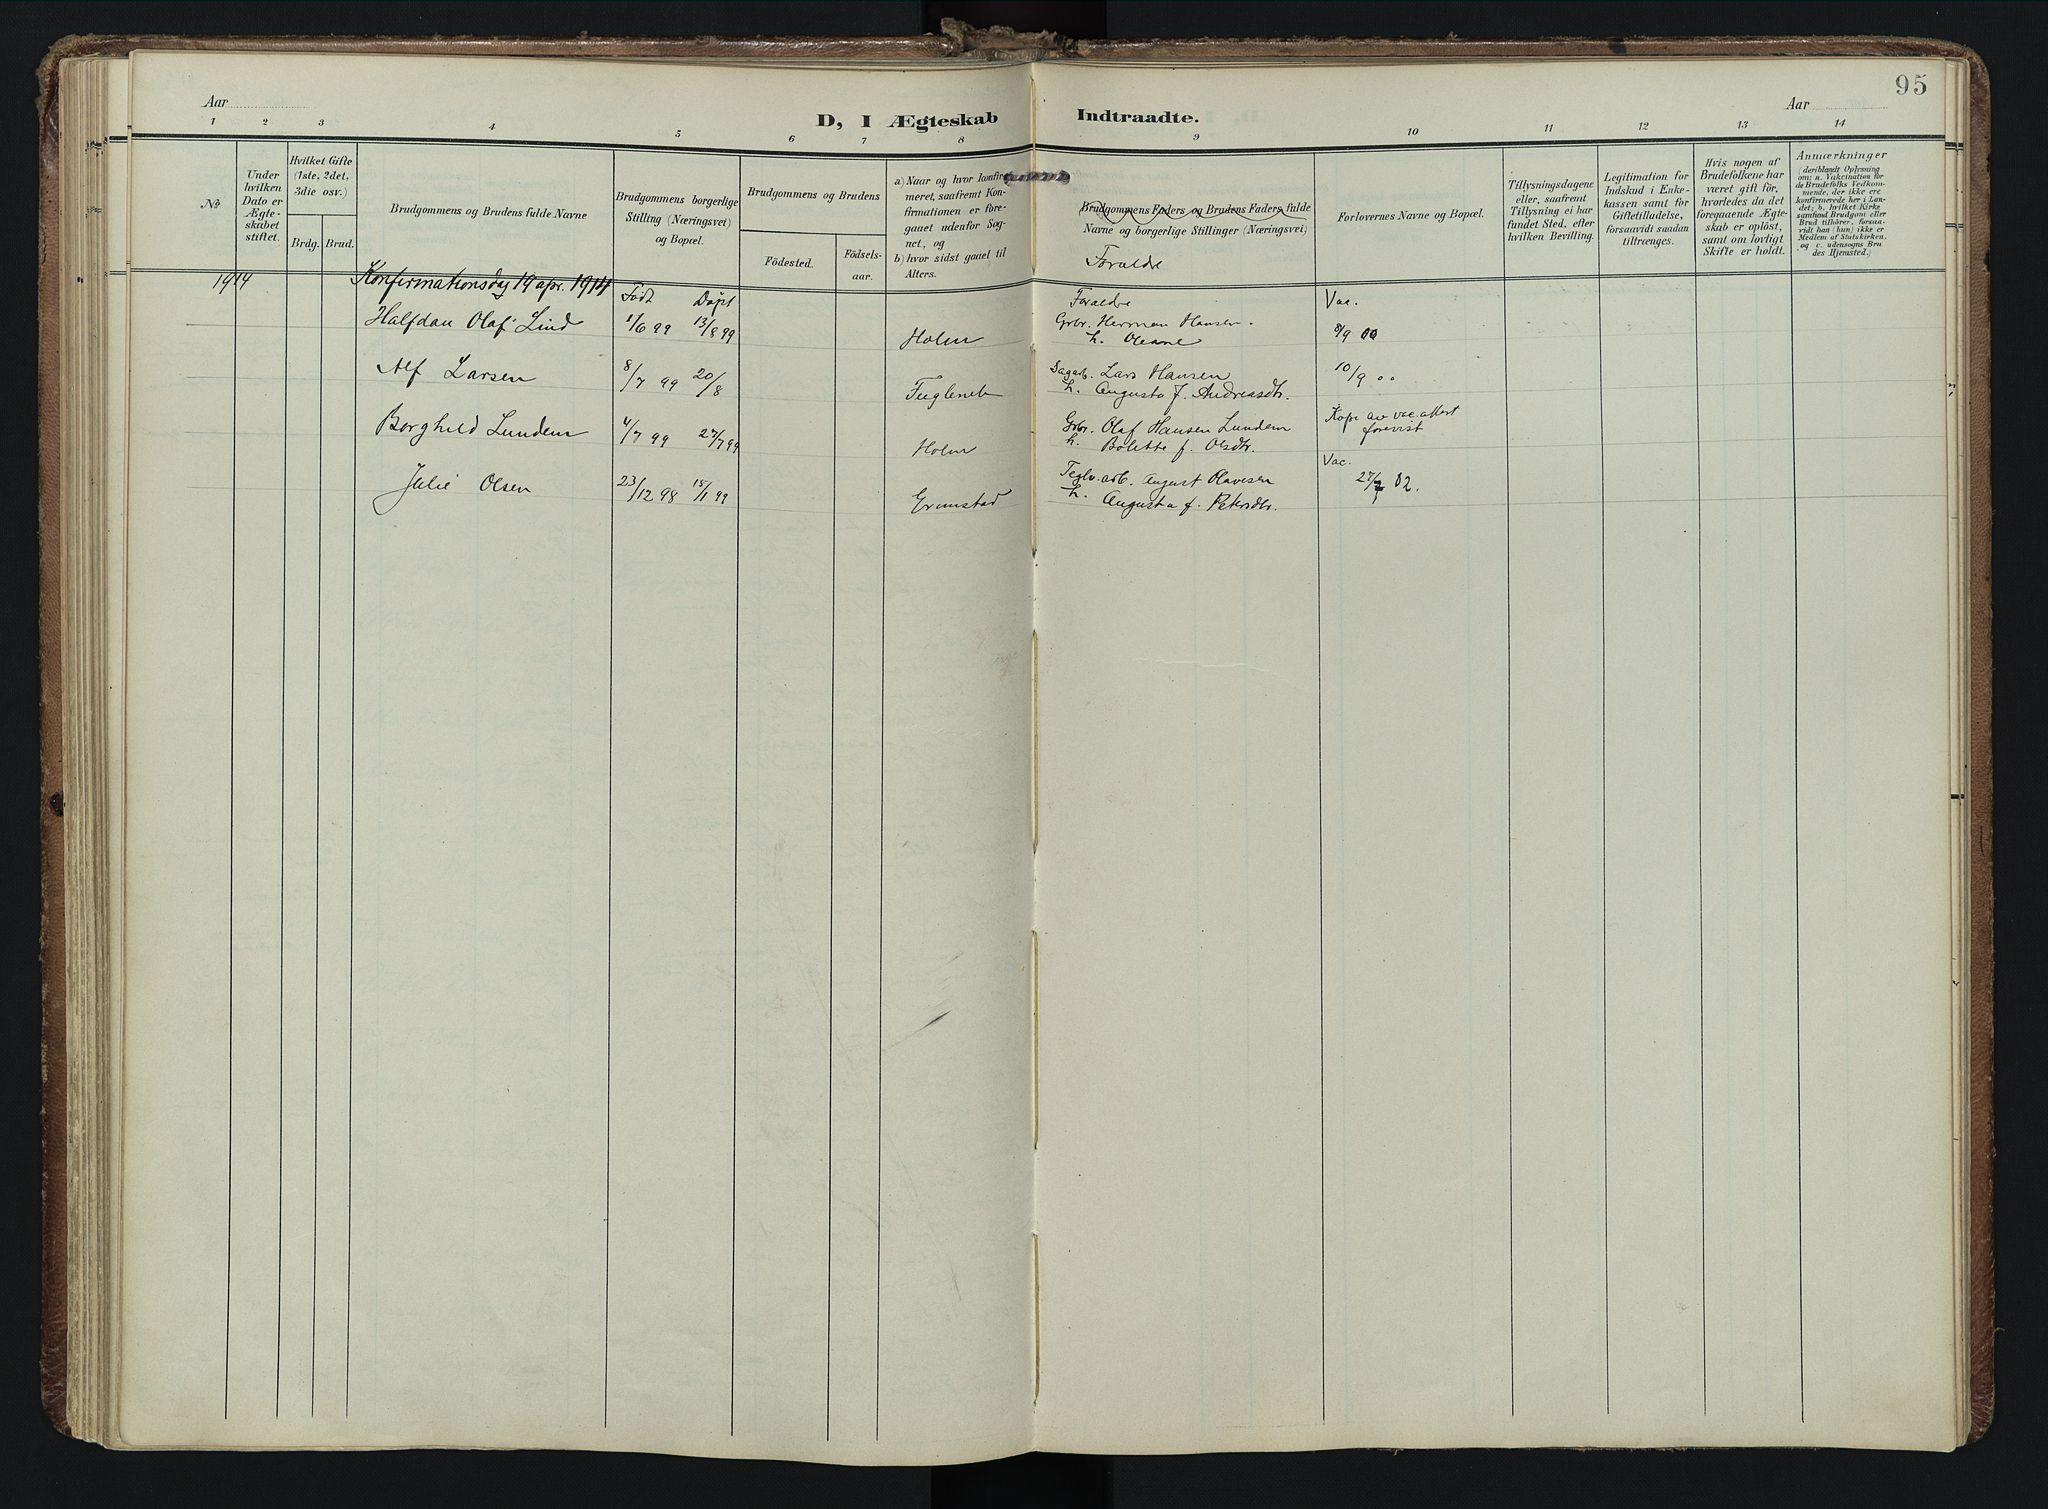 95
Aar
D, I Ægteskab Indtraadte.
Aar
1 2 3 4 5 6 7 8 9 10 11 12 13 14
No
Under
hvilken
Dato er
Ægte-
skabet
stiftet.
Hvilket Gifte
(1ste, 2det,
3die osv.)
Brdg. Brud.
Brudgommens og Brudens fulde Navne
Brudgommens borgerlige
Stilling (Næringsvei)
og Bopæl.
Brudgommens og Brudens
Födested.
Födsels-
aar.
a) Naar og hvor konfir-
meret, saafremt Kon-
firmationen er fore-
gaaet udenfor Sog-
net, og
b) hvor sidst gaaet til
Alters.
Brudgommens Faders og Brudens Faders fulde
Navne og borgerlige Stillinger (Næringsvei)
Foraldre
Forlovernes Navne og Bopæl.
Tillysningsdagene
eller, saafremt
Tillysning ei har
fundet Sted, efter
hvilken Bevilling.
Legitimation for
Indskud i Enke-
kassen samt for
Giftetilladelse,
forsaavidt saadan
tiltrænges.
Hvis nogen af
Brudefolkene har
været gift før,
hvorledes da det
foregaaende Ægte-
skab er oplöst,
samt om lovligt
Skifte er holdt.
Anmærkninger
(deriblandt Oplysning
om: a. Vakcination for
de Brudefolks Vedkom-
mende, der ikke ere
konfirmerede her i Lan-
det; b. hvilket Kirke-
samfund Brudgom eller
Brud tilhörer, forsaa-
vidt han (hun) ikke er
Medlem af Statskirken.
og c. udensogns Bru-
des Hjemsted.)
1914 Konfirmationsdag 19 apr. 1914
Født Døpt Foraldre Vac.
Halfdan Olaf Lind 1/6 99 13/8 99 Holm Grbr. Herman Hansen. 8/9 00
h. Oleane
Alf Larsen 8/7 99 20/8 Fugleneb Dagarb. Lars Hansen 10/9 00
h. Augusta f. Andreasdtr.
Borghild Lundem 4/7 99 27/7 99 Holm Grbr. Olaf Hansen Lundem Kopi av vac. attest
h. Bolette f. Olsdtr. forevist
Vac.
Julie Olsen 23/12 98 15/1 99 Grimstad Teglv. arb. August Olavesen 02.
h. Augusta f. Petersdtr.